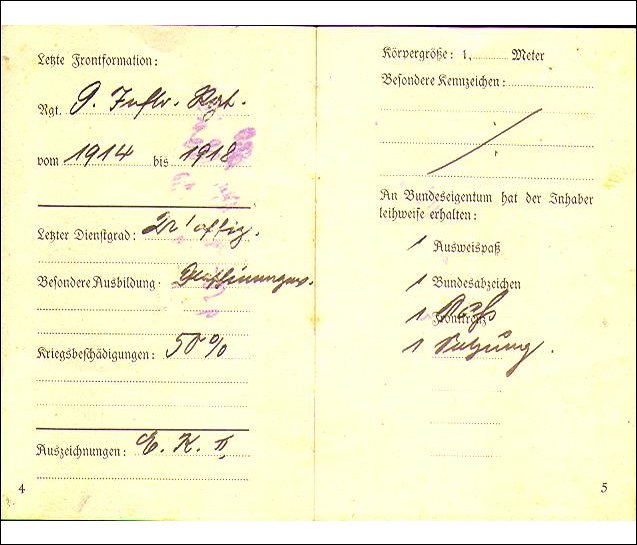 Letzte Frontformation:
Rgt. 9. Inftr. Rgt.
vom 1914 bis 1918
Letzter Dienstgrad:
Besondere Ausbildung
Kriegsbeschädigungen: 50%
Auszeichnungen: E. K. II.
4
Körpergröße: 1, Meter
Besondere Kennzeichen:
An Bundeseigentum hat der Inhaber
leihweise erhalten:
1 Ausweispaß
1 Bundesabzeichen
1
1 Satzung.
5